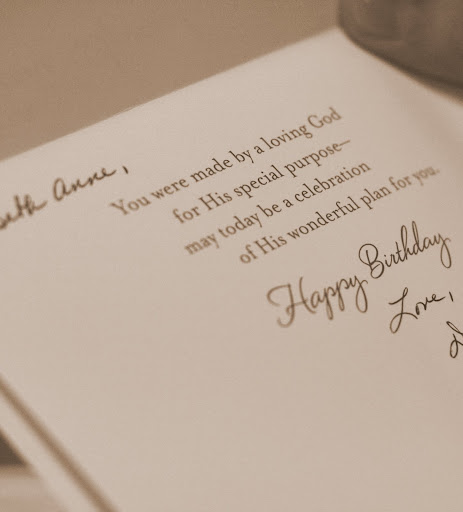 Anne,
You were made by a loving God
for His special purpose—
may today be a celebration
of His wonderful plan for you.
Happy Birthday
Love,